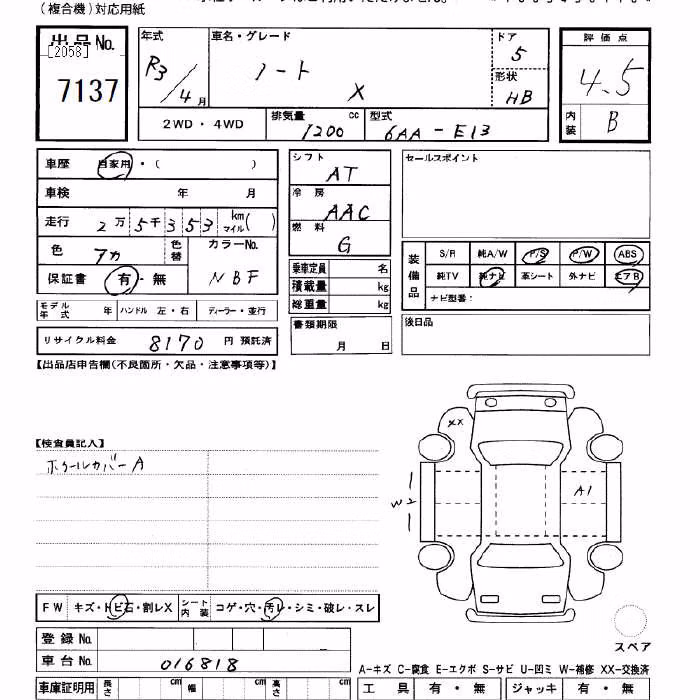 (複合機)対応用紙
出品No. 年式 車名・グレード ドア 評価点
[2058]
7137 R3/4月 ノート X 5 形状 HB 4.5
2WD・4WD 排気量 1200 cc 型式 6AA-E13 内装 B
車歴 自家用・( )
車検 年 月
走行 2万5千353 km マイル( )
色 アカ 色替 カラーNo. NBF
保証書 有・無
モデル年式 年 ハンドル 左・右 ディーラー・並行
リサイクル料金 8170 円 預託済
シフト AT
冷房 AAC
燃料 G
乗車定員 名
積載量 kg
総重量 kg
書類期限
月 日
セールスポイント
装備品 S/R 純A/W P/S P/W ABS
純TV 純ナビ 革シート 外ナビ エアB
ナビ型番:
後日品
【出品店申告欄(不良箇所・欠品・注意事項等)】
【検査員記入】
ホイールカバーA
XX
W2
A1
FW キズ・トビ石・割レX シート内装 コゲ・穴・汚レ・シミ・破レ・スレ
登録No.
車台No. 016818
スペア
A-キズ C-腐食 E-エクボ S-サビ U-凹ミ W-補修 XX-交換済
車庫証明用 長さ cm 幅 cm 高さ cm 工具 有・無 ジャッキ 有・無